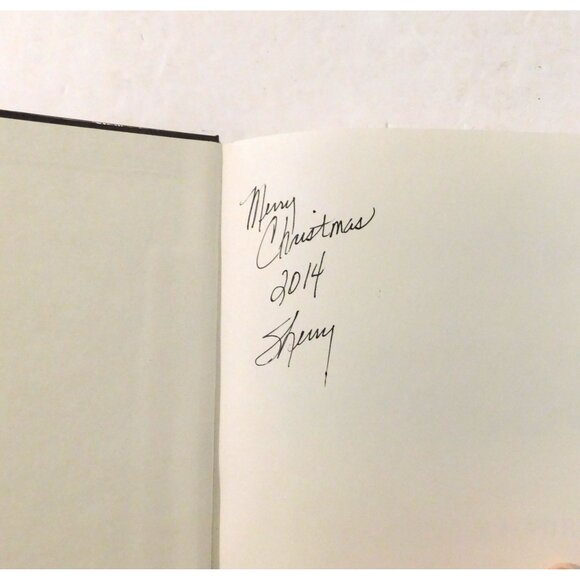 Merry
Christmas
2014
Sherry